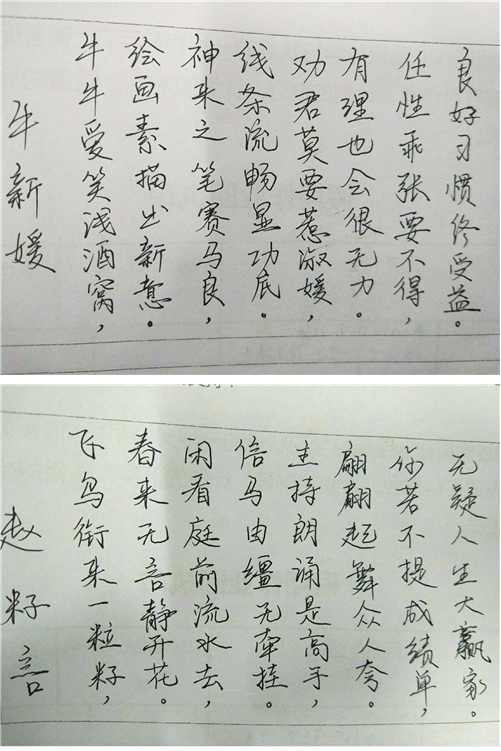 牛新媛
牛牛爱笑浅酒窝，
绘画素描出新意。
神来之笔赛马良，
线条流畅显功底。
劝君莫要惹淑媛，
有理也会很无力。
任性乖张要不得，
良好习惯终受益。
赵籽言
飞鸟衔来一粒籽，
春来无言静开花。
闲看庭前流水去，
信马由缰无牵挂。
主持朗诵是高手，
翩翩起舞众人夸。
你若不提成绩单，
无疑人生大赢家。